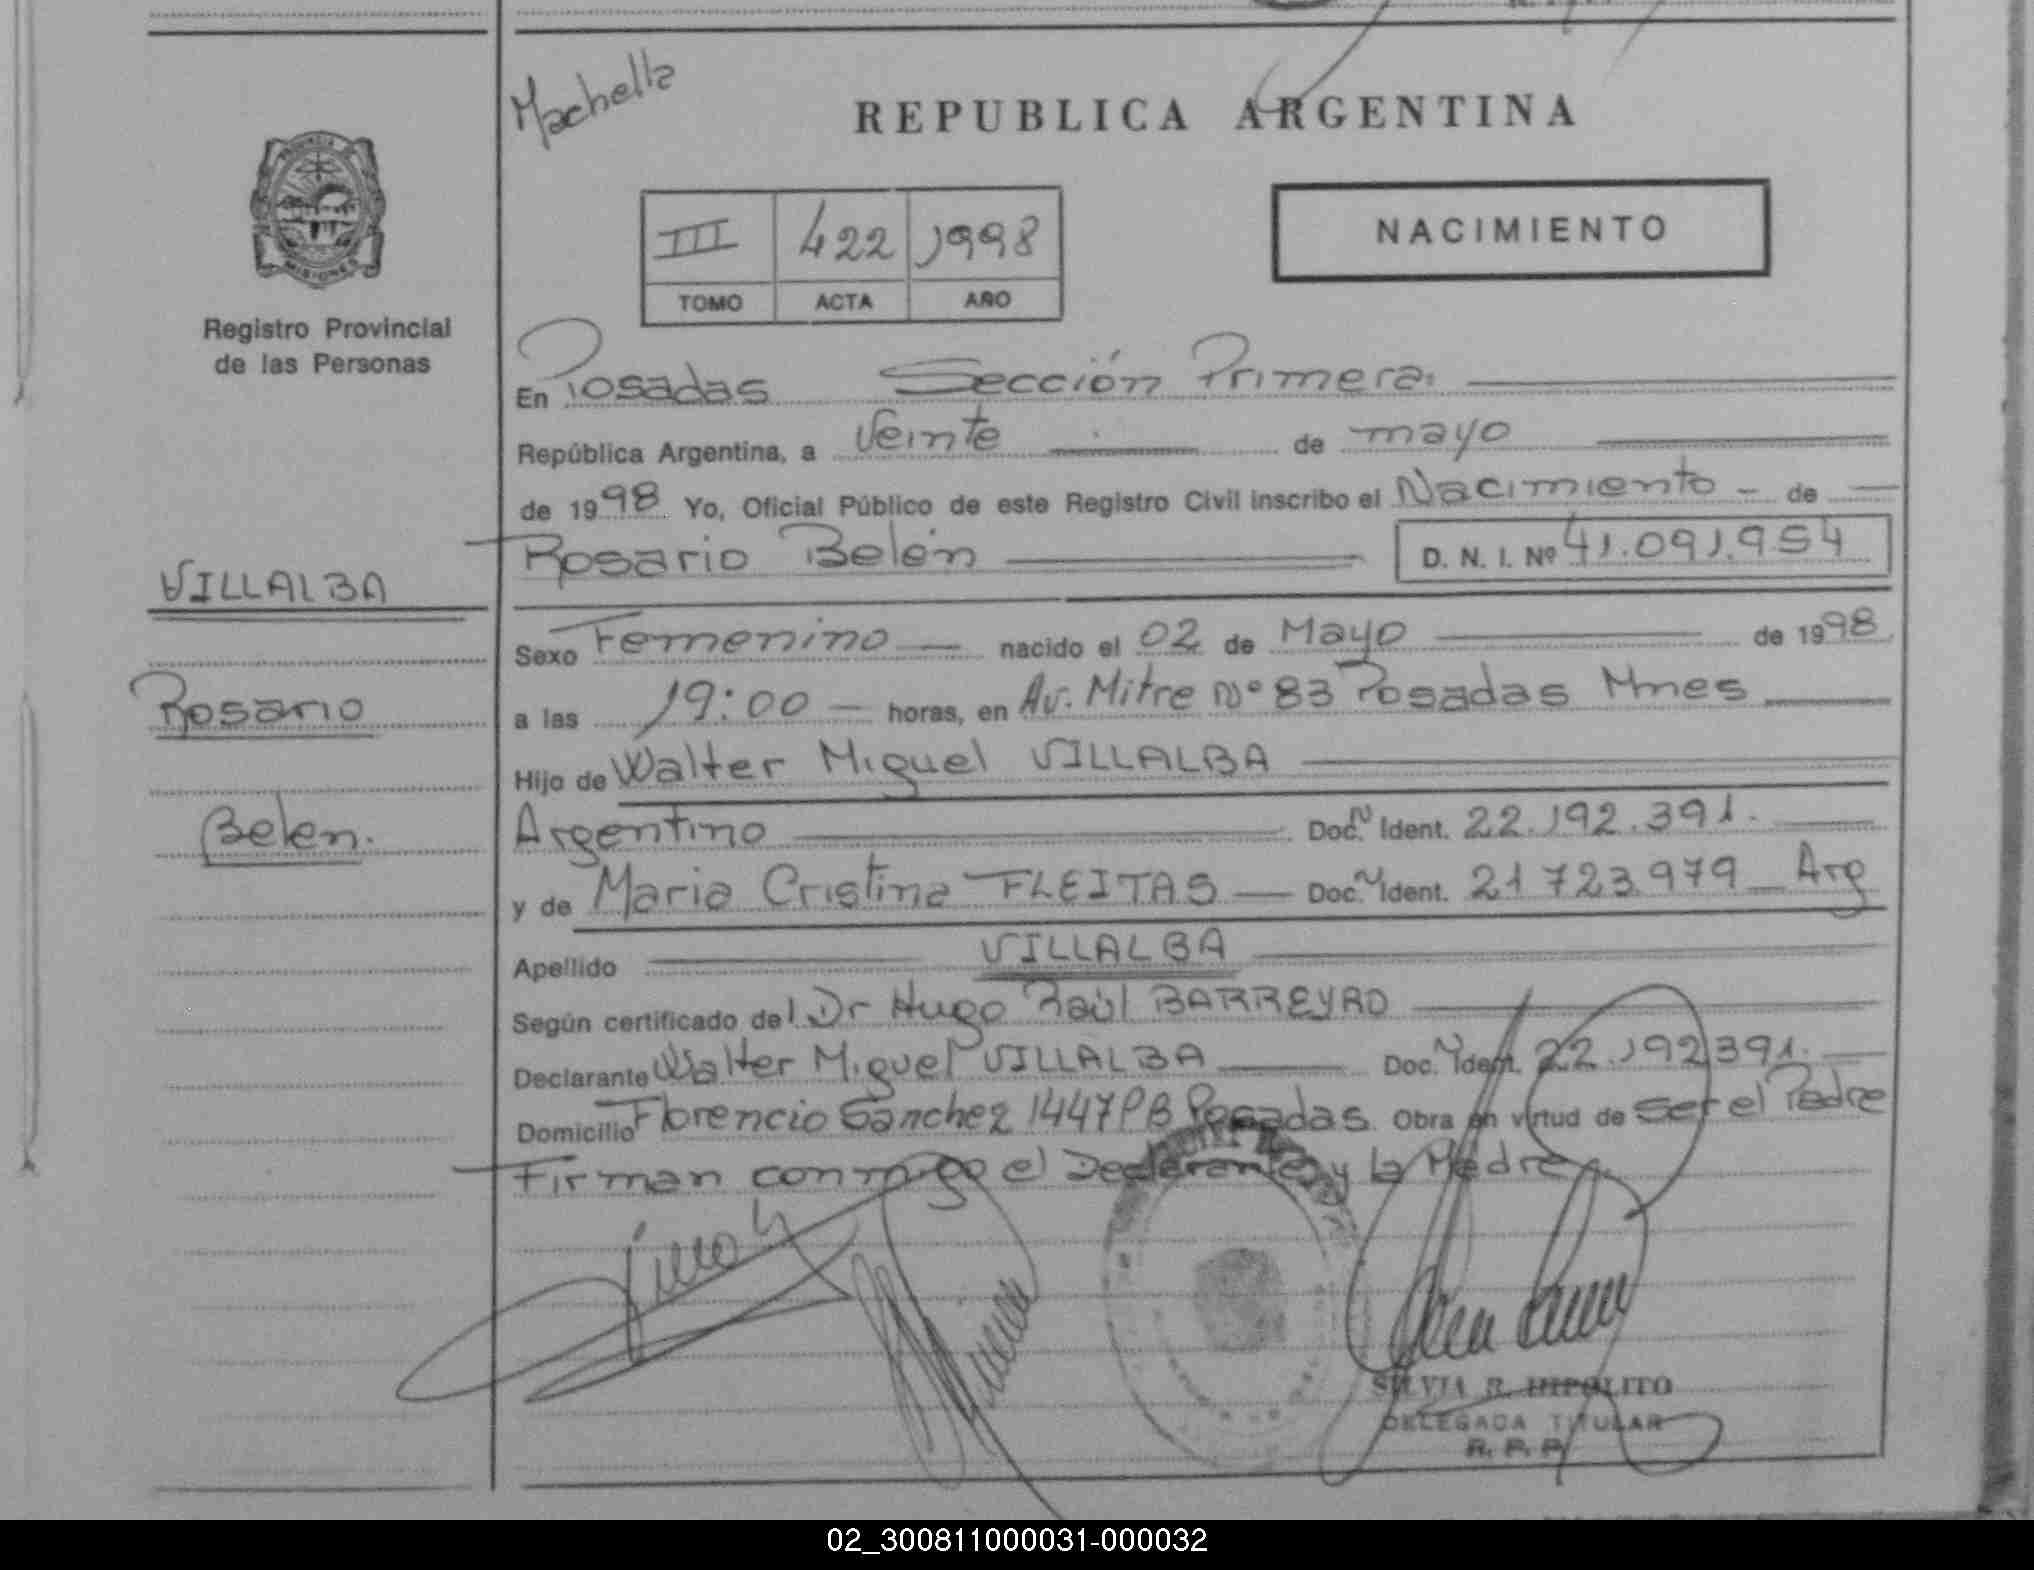 Machella
REPUBLICA ARGENTINA
PROVINCIA DE
MISIONES
Registro Provincial
de las Personas
III 422 1998
TOMO ACTA AÑO
NACIMIENTO
En Posadas Sección Primera
República Argentina, a Veinte de mayo
de 1998 Yo, Oficial Público de este Registro Civil inscribo el Nacimiento - de
Rosario Belén D. N. I. Nº 41.091.954
VILLALBA
Rosario
Belen.
Sexo Femenino nacido el 02 de Mayo de 1998
a las 19:00 horas, en Av. Mitre Nº 83 Posadas Mnes
Hijo de Walter Miguel VILLALBA
Argentino Doc. N Ident. 22.192.391.
y de Maria Cristina FLEITAS Doc. N Ident. 21723979 Arg
Apellido VILLALBA
Según certificado del Dr Hugo Raúl BARREYRO
Declarante Walter Miguel VILLALBA Doc. N Ident. 22.192391.
Domicilio Florencio Sanchez 1447 PB Posadas. Obra en virtud de ser el Padre
Firman conmigo el Declarante y la Madre
SILVIA R. HIPOLITO
DELEGADA TITULAR
R. P. P.
02_300811000031-000032